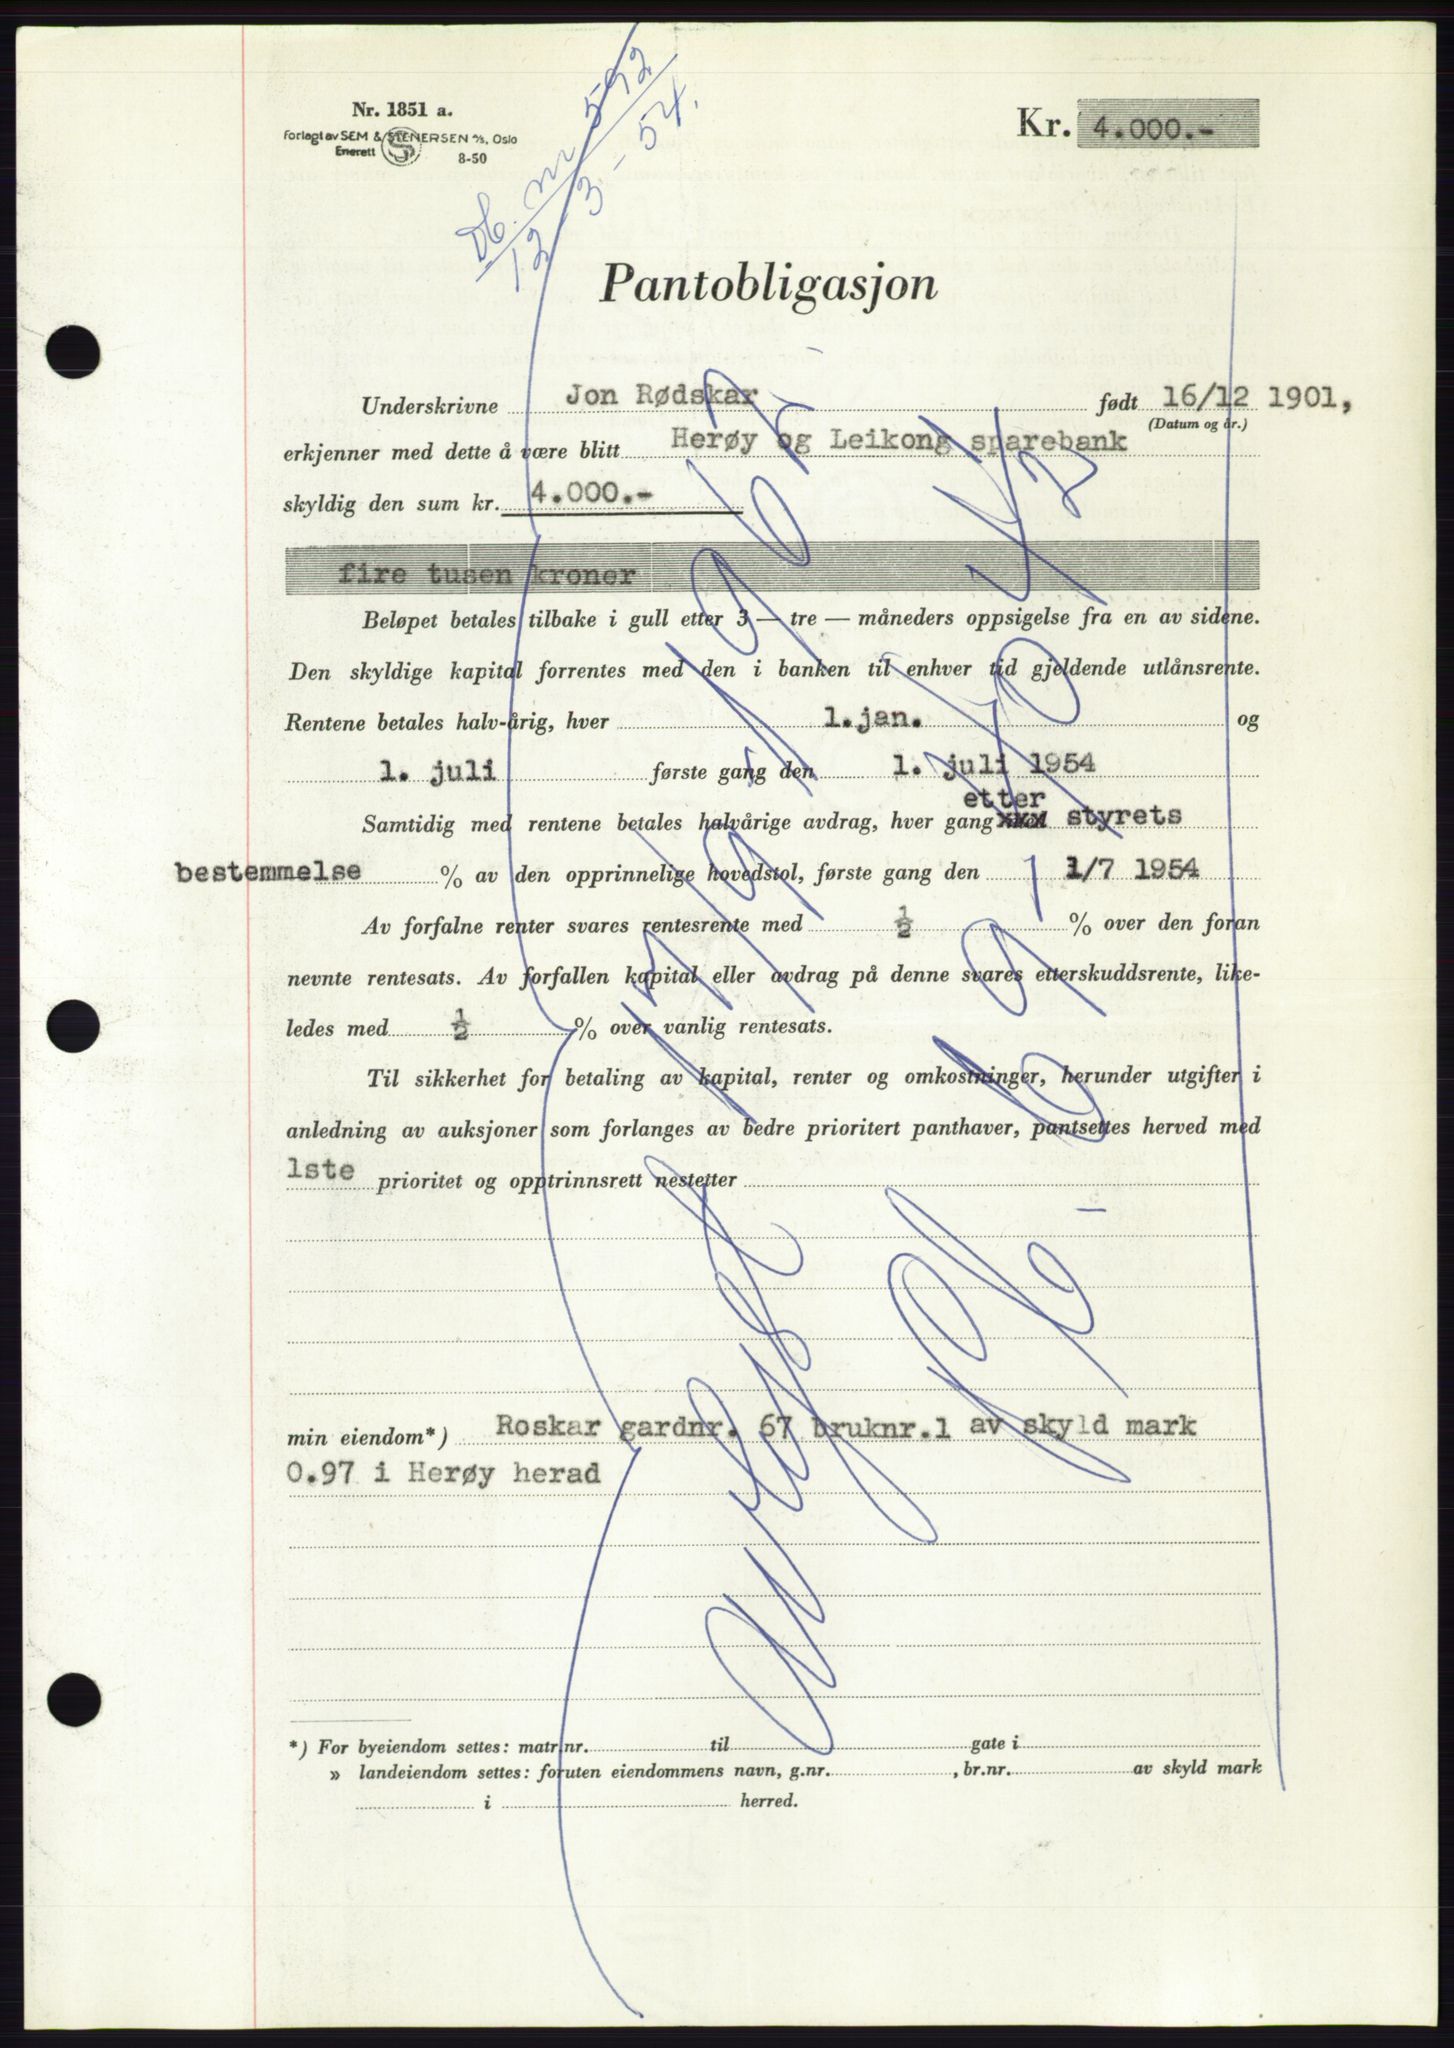 Nr. 1851 a.
Forlagt av SEM & STENERSEN A/S, Oslo
Enerett
8-50
Db. nr 592
12/3-54.
Kr. 4.000.-
Pantobligasjon
Underskrivne Jon Rødskar født 16/12 1901,
(Datum og år.)
erkjenner med dette å være blitt Herøy og Leikong sparebank
skyldig den sum kr. 4.000.-
fire tusen kroner
Beløpet betales tilbake i gull etter 3 — tre — måneders oppsigelse fra en av sidene.
Den skyldige kapital forrentes med den i banken til enhver tid gjeldende utlånsrente.
Rentene betales halv-årig, hver 1.jan. og
1. juli første gang den 1. juli 1954
etter
Samtidig med rentene betales halvårige avdrag, hver gang xxx styrets
bestemmelse % av den opprinnelige hovedstol, første gang den 1/7 1954
Av forfalne renter svares rentesrente med ½ % over den foran
nevnte rentesats. Av forfallen kapital eller avdrag på denne svares etterskuddsrente, like-
ledes med ½ % over vanlig rentesats.
Til sikkerhet for betaling av kapital, renter og omkostninger, herunder utgifter i
anledning av auksjoner som forlanges av bedre prioritert panthaver, pantsettes herved med
1ste prioritet og opptrinnsrett nestetter
min eiendom*) Roskar gardnr. 67 bruknr.1 av skyld mark
0.97 i Herøy herad
*) For byeiendom settes: matr.nr. til gate i
» landeiendom settes: foruten eiendommens navn, g.nr. , br.nr. av skyld mark
i herred.